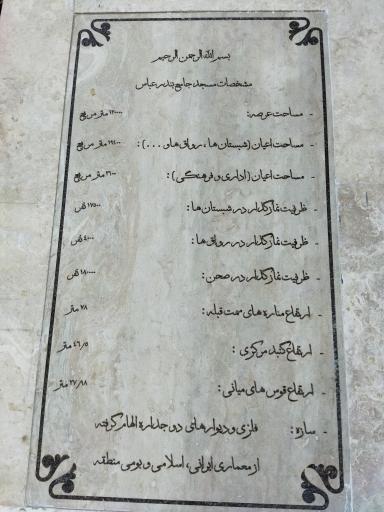 بسم الله الرحمن الرحیم
مشخصات مسجد جامع بندرعباس
- مساحت عرصه: متر مربع
- مساحت اعیان (شبستان ها، رواق ها و ...): متر مربع
- مساحت اعیان (اداری و فرهنگی): متر مربع
- ظرفیت نمازگذار در شبستان ها: نفر
- ظرفیت نمازگذار در رواق ها: نفر
- ظرفیت نمازگذار در صحن: نفر
- ارتفاع مناره های سمت قبله: متر
- ارتفاع گنبد مرکزی: ۴۶/۵ متر
- ارتفاع قوس های میانی: ۲۷/۸۸ متر
- سازه: فلزی و دیوارهای دو جداره الهام گرفته
از معماری ایرانی، اسلامی و بومی منطقه